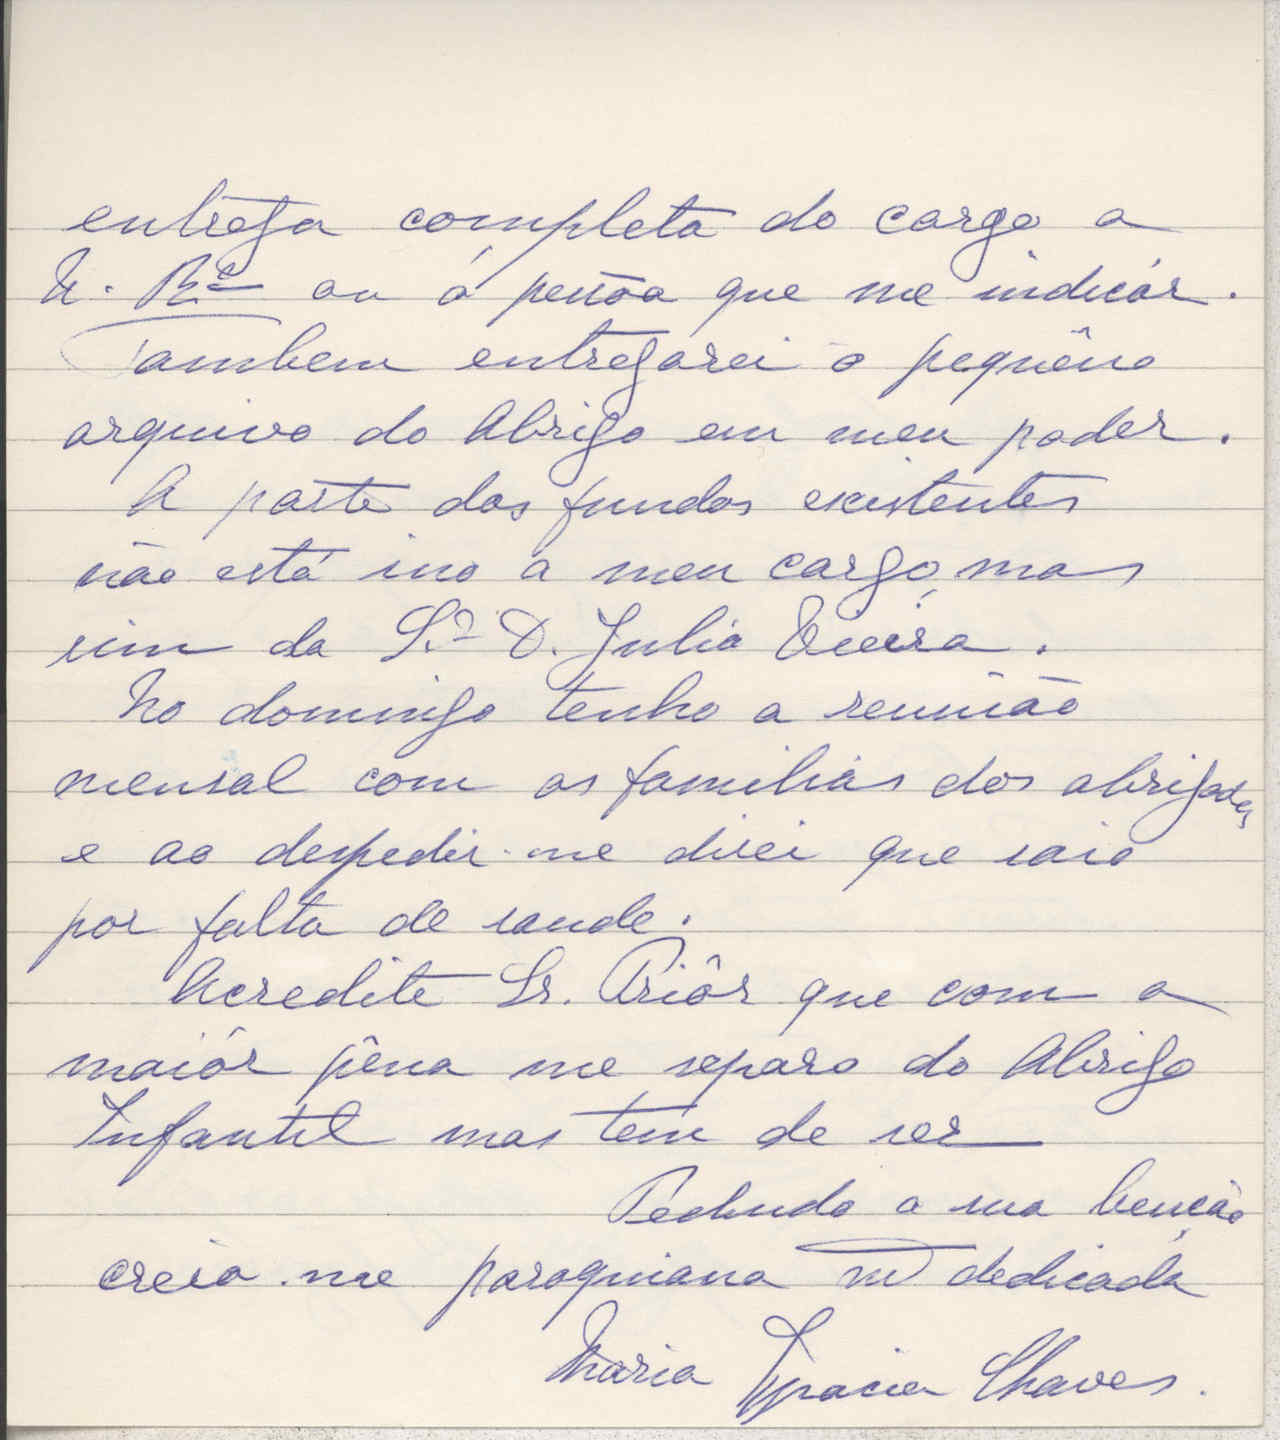 entrega completa do cargo a
V. Rª ou á pessôa que me indicár.
Tambem entregarei o pequêno
arquivo do Abrigo em meu poder.
A parte dos fundos existentes
não está a meu cargo, mas
sim da Sr.ª D. Julia Vieira.
No domingo tenho a reunião
mensal com as familias dos abrigados
e ao despedir-me direi que saio
por falta de saude.
Acredite Sr. Priôr que com a
maiór pêna me separo do Abrigo
Infantil mas tem de ser
Pedindo a sua benção
creia-me paroquiana m dedicada
Maria Ignacia Chaves.